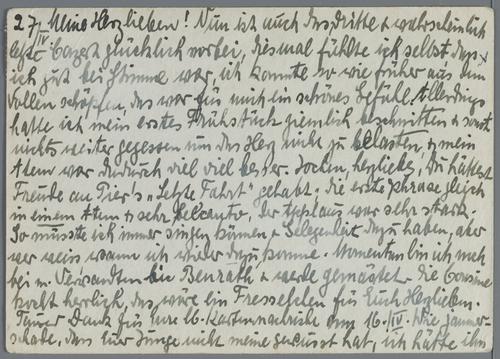 27/IV Meine Herzlieben! Nun ist auch das dritte & wahrscheinlich
letzte Conzert glücklich vorbei, diesmal fühlte ich selbst dass
ich gut bei Stimme war, ich konnte so wie früher aus dem
Vollen schöpfen, das war für mich ein schönes Gefühl. Allerdings
hatte ich mein erstes Frühstück ziemlich beschnitten & sonst
nichts weiter gegessen um das Herz nicht zu belasten & mein
Atem war dadurch viel viel besser. Jochen, herzliebes, Du hättest
Freude an Pier's „Letzte Fahrt" gehabt, die erste Phrase gleich
in einem Atem & sehr belcanto, der Applaus war sehr stark.
So müsste ich immer singen können & Gelegenheit dazu haben, aber
wer weiss wann ich wieder dazu komme. Momentan bin ich noch
bei m. Verwandten in Benrath & werde gemästet. Die Cousine
kocht herrlich, das wäre ein Fressfelen für Euch Herzlieben.
Dank für Eure 16. Kartennachricht vom 16./IV. Wie jammer-
schade, dass Euer Junge nicht meine gewusst hat, ich hätte ihn